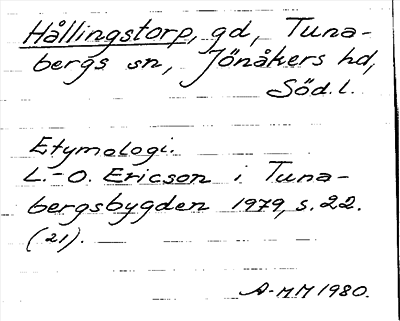 Hållingstorp, gd, Tuna-
bergs sn, Jönåkers hd,
Söd.l.
Etymologi.
L.-O. Ericson i Tuna-
bergsbygden 1979, s. 22.
(21).
A-MM 1980.